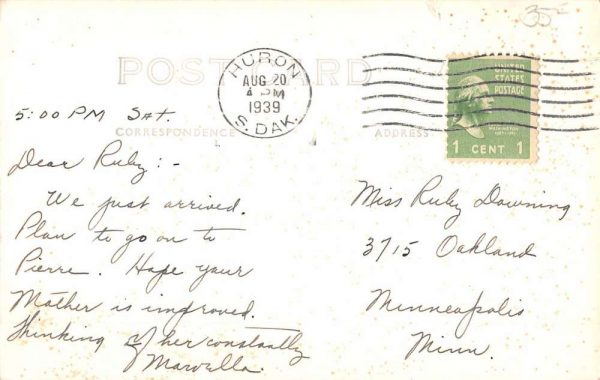 35¢
POST CARD
HURON
AUG 20
4 PM
1939
S. DAK.
UNITED
STATES
POSTAGE
WASHINGTON
1 CENT 1
5:00 PM Sat.
CORRESPONDENCE
Dear Ruby:-
We just arrived.
Plan to go on to
Pierre. Hope your
Mother is improved.
Thinking of her constantly
Marvella
ADDRESS
Miss Ruby Downing
3715 Oakland
Minneapolis
Minn.